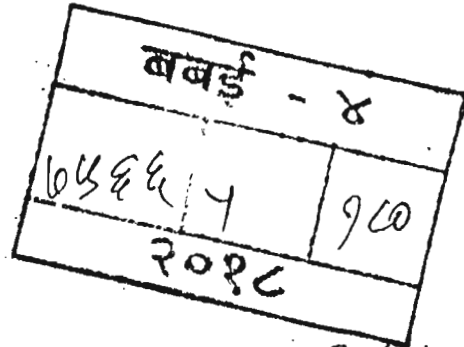 बबई - ४
७५६६ ५ १८०
२०१८